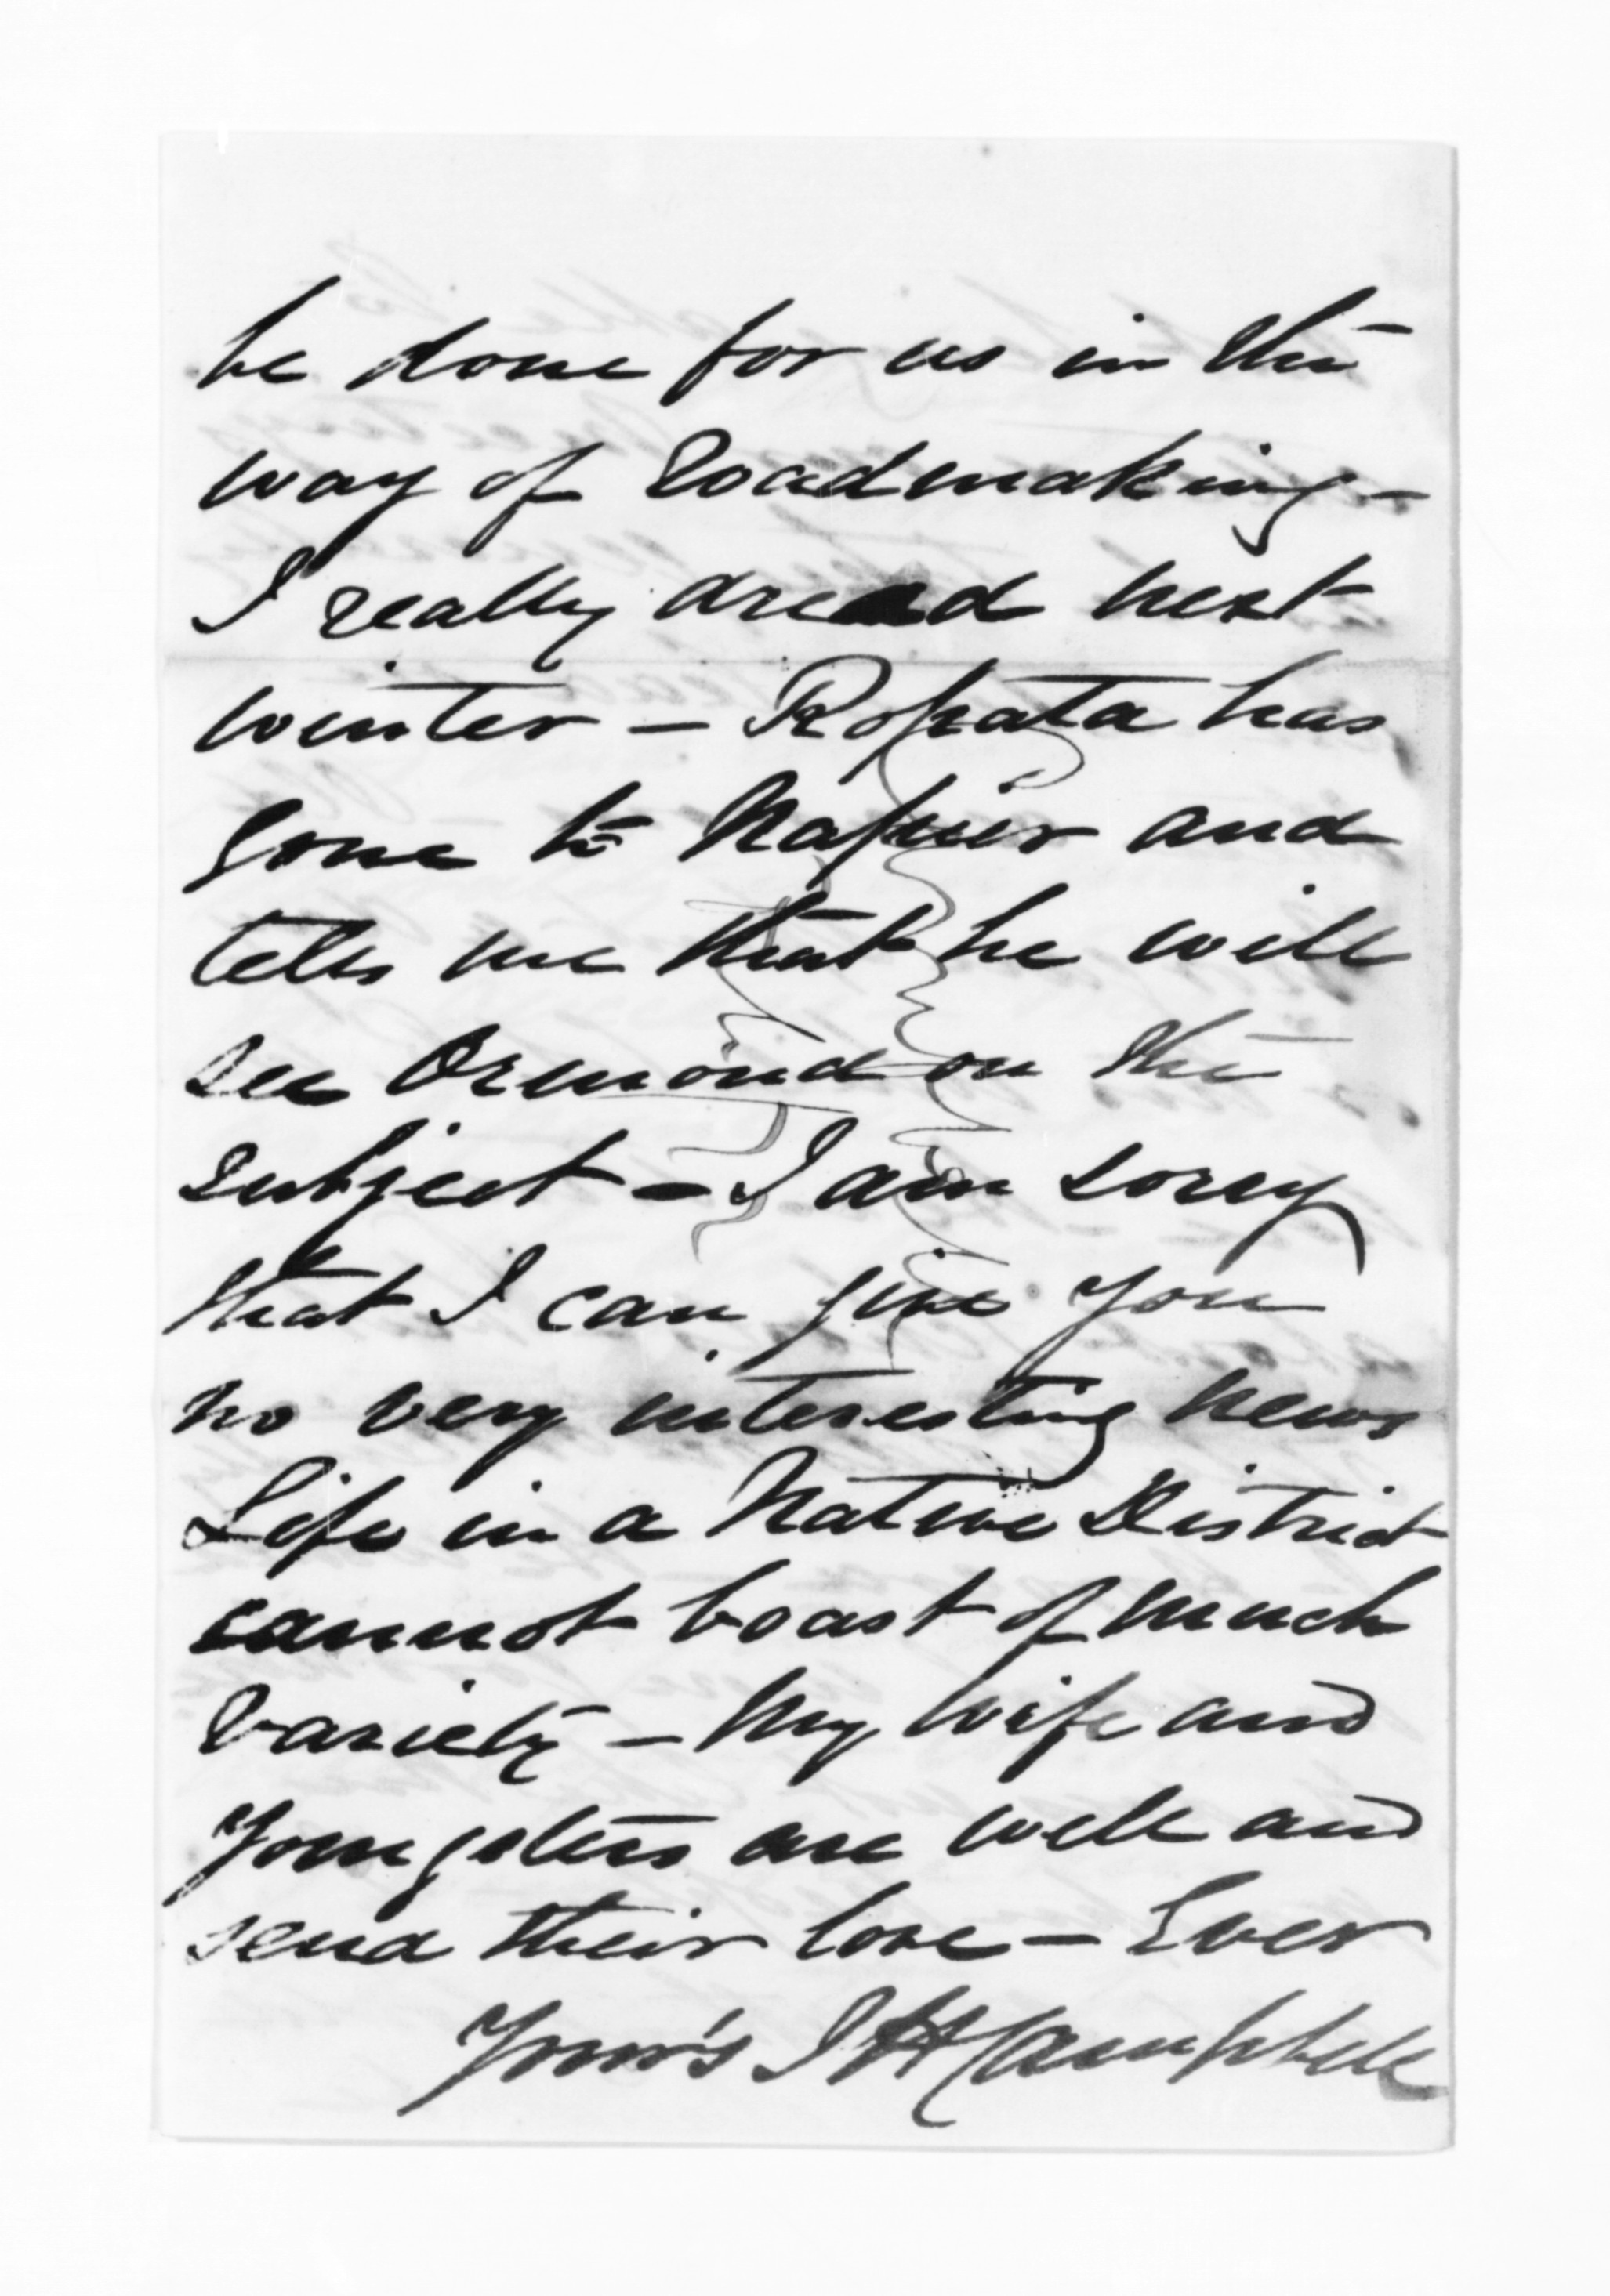 be done for us in the
way of Roadmaking -
I really dread next
winter - Ropata has
gone to Napier and
tells me that he will
see Ormond on the
subject - I am sorry
that I can give you
no very interesting news
Life in a Native District
cannot boast of much
variety - My wife and
Youngsters are well and
send their love - Ever
Your's J H Campbell